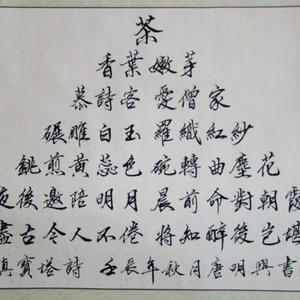 茶
香葉 嫩芽
慕詩客 愛僧家
碾雕白玉 羅織紅紗
銚煎黃蕊色 碗轉曲塵花
夜後邀陪明月 晨前命對朝霞
盡古今人不倦 將知醉後豈堪
稹寶塔詩 壬辰年秋月唐明興書